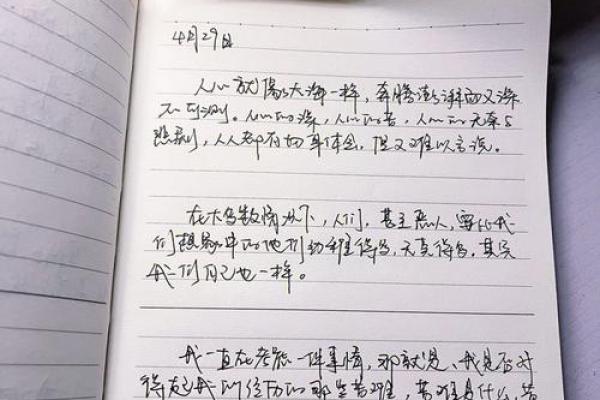 4月29日
人心就像大海一样，奔腾澎湃而又深
不可测。人心的深，人心的苦，人心的无奈与
悲剧，人人都有切身体会，但又难以言说。
在大多数情况下，人们，甚至恶人，要比我
们想象中的他们幼稚得多，天真得多，其实
我们自己也一样。
我一直在考虑一件事情，那就是、我是否对
得起我所经历的那些苦难，苦难是什么，苦